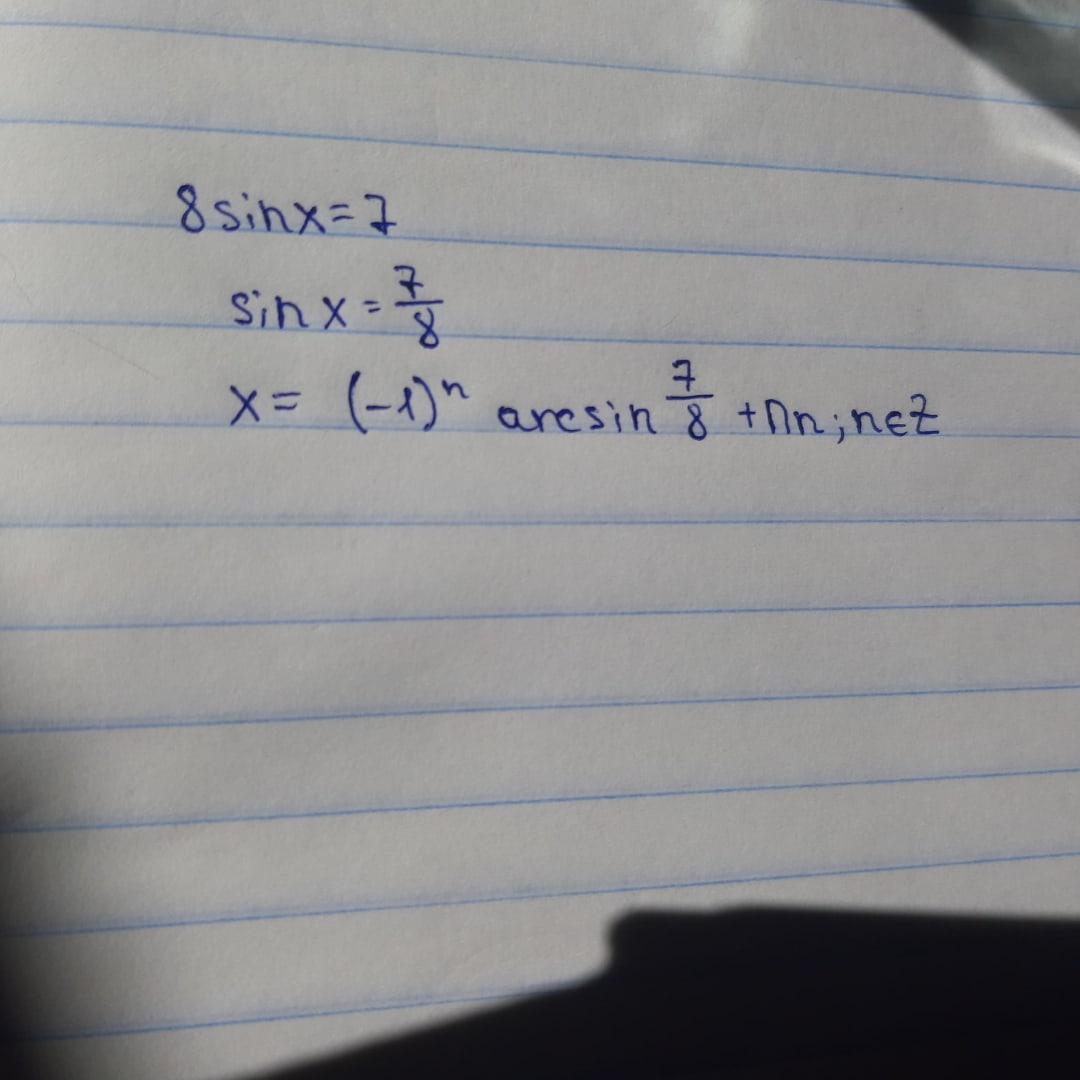 8 sin x = 7
sin x = 7/8
x = (-1)ⁿ arcsin 7/8 + πn; n∈Z